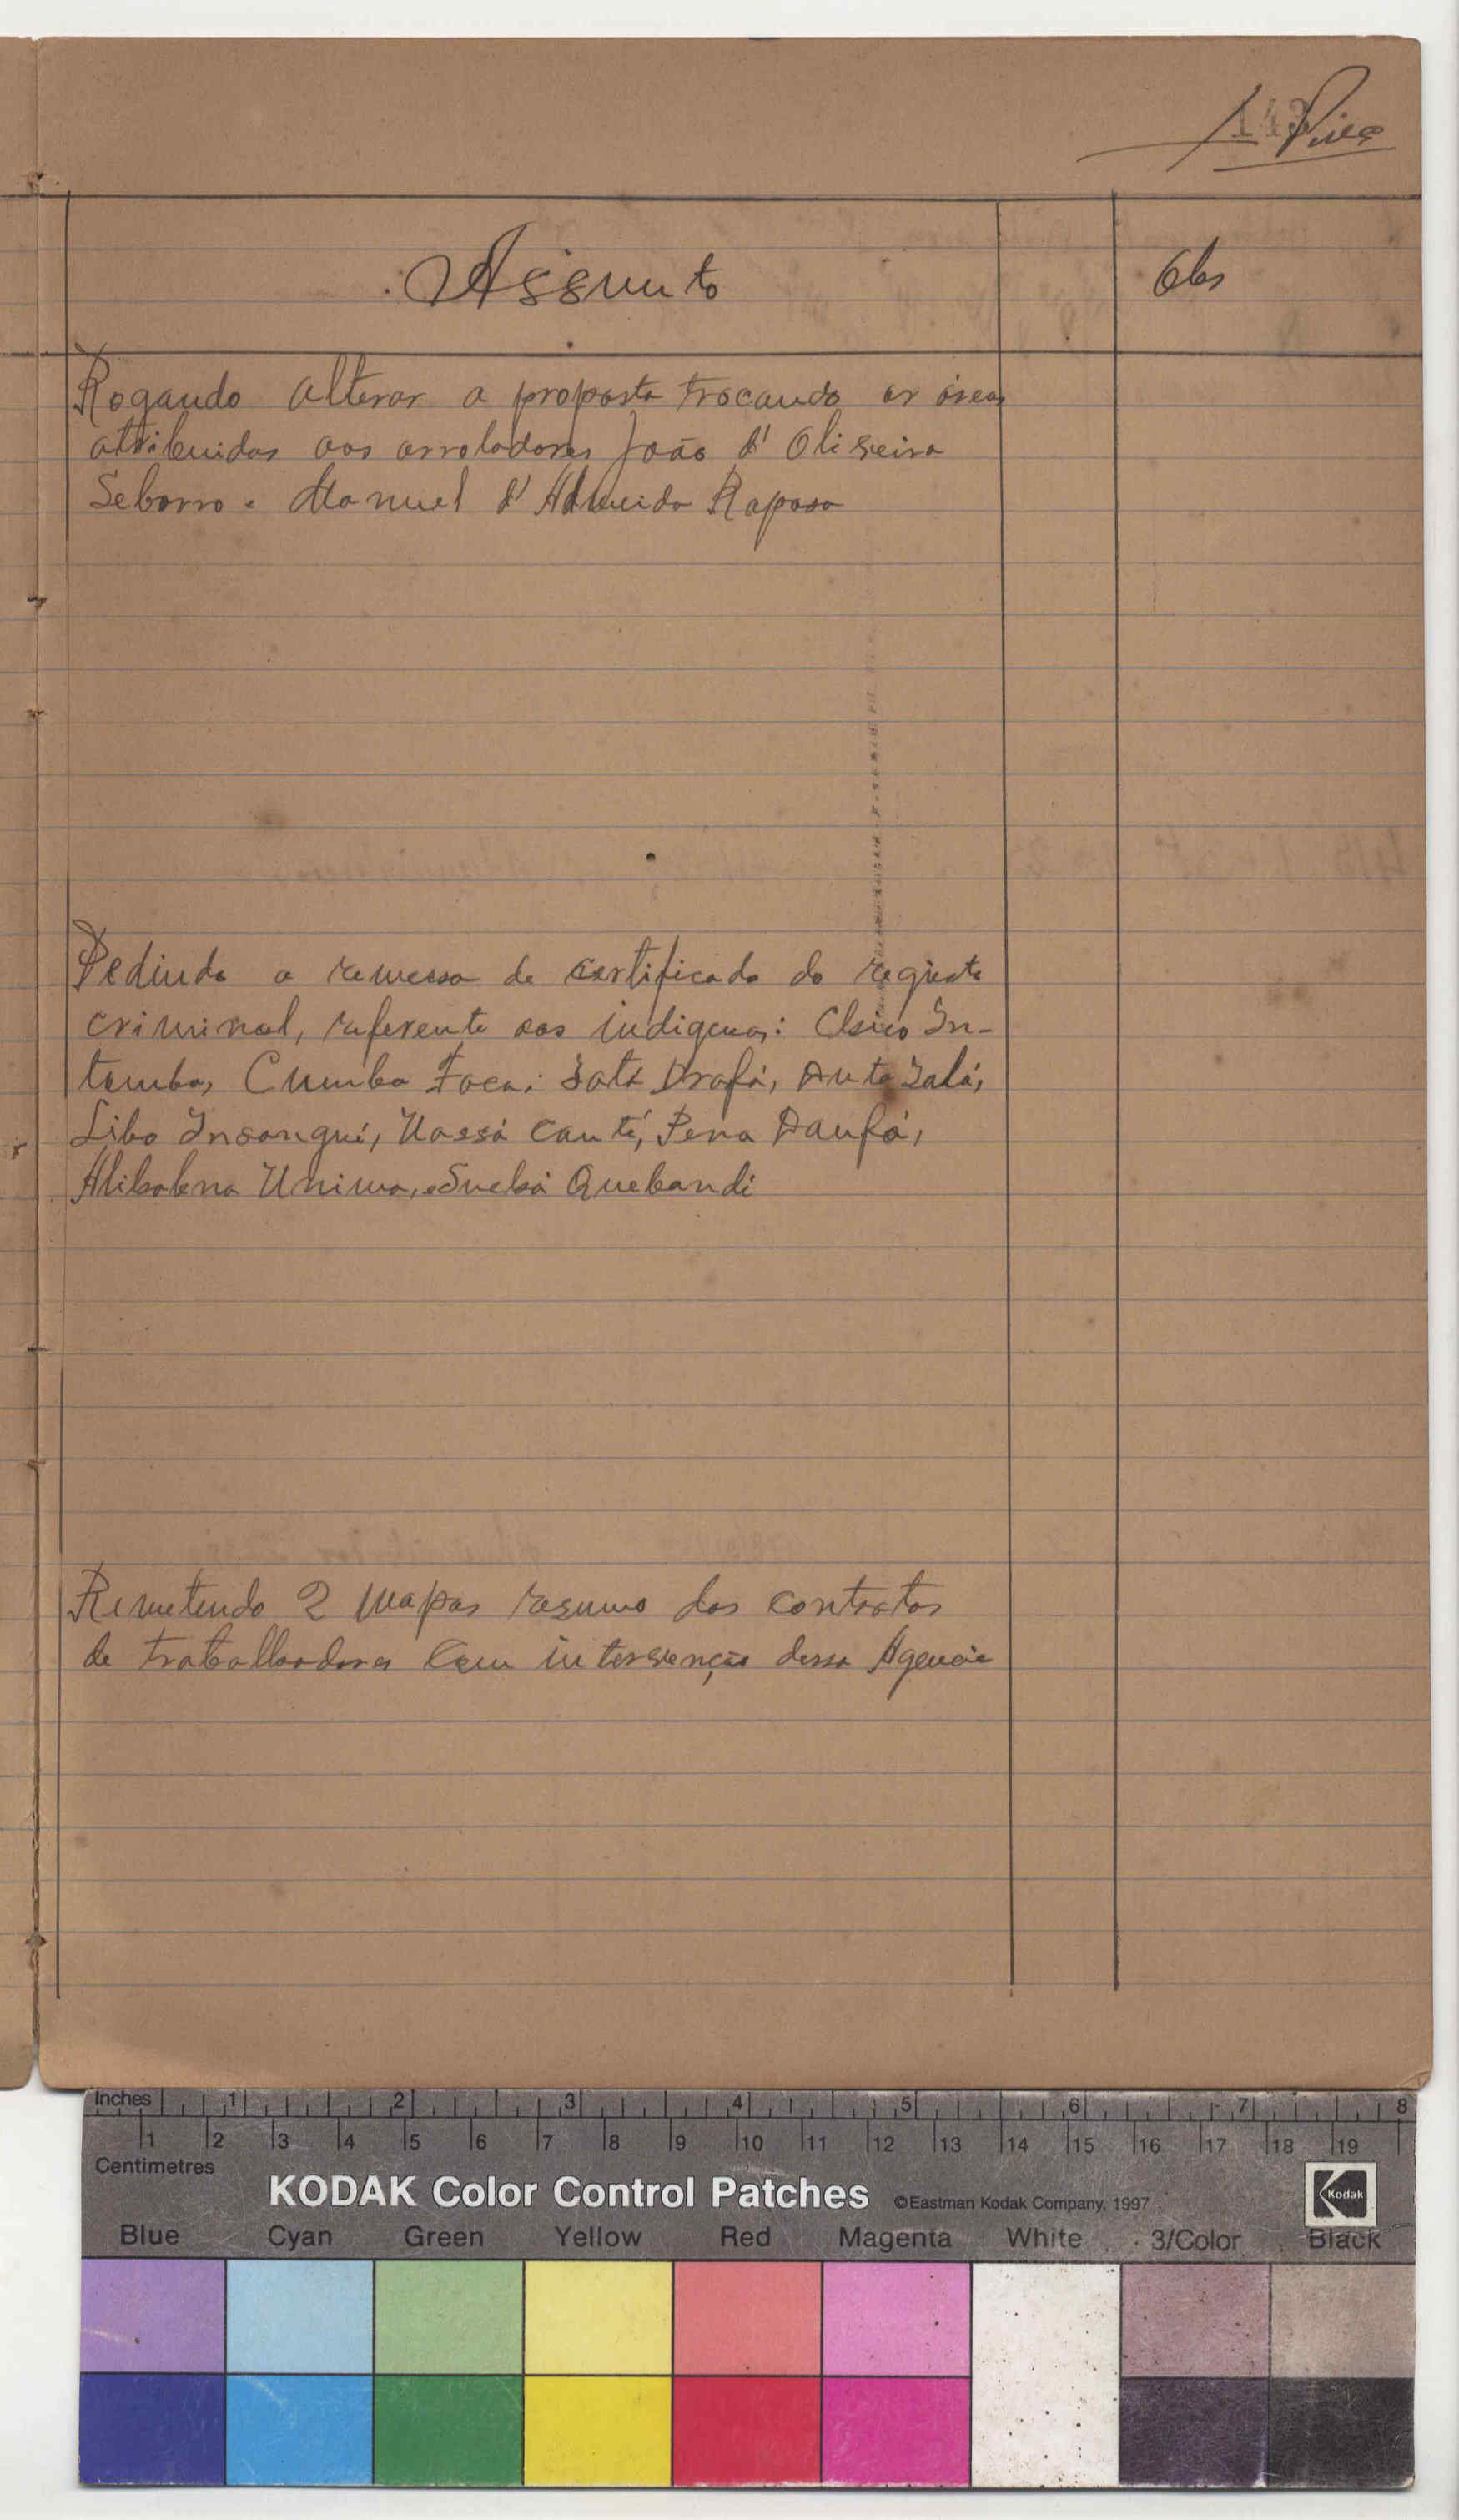 143 Pires
Assunto
Obs
Rogando alterar a proposta trocando as áreas
atribuidas aos arroladores João d'Oliveira
Seborro e Manuel d'Almeida Raposo
Pedindo a remessa de certificado do registo
criminal, referente aos indigenas: Chico In-
tumba, Cumba Faca; Satá Drafá, Anta Salá,
Libo Insangué, Uassá Canté, Pena Danfá,
Alibabena Unima, e Suebá Quebandi
Remetendo 2 mapas resumo dos contratos
de trabalhadores com intervenção dessa Agencia
Inches 1 2 3 4 5 6 7 8
1 2 3 4 5 6 7 8 9 10 11 12 13 14 15 16 17 18 19
Centimetres
KODAK Color Control Patches ©Eastman Kodak Company, 1997 Kodak
Blue Cyan Green Yellow Red Magenta White 3/Color Black